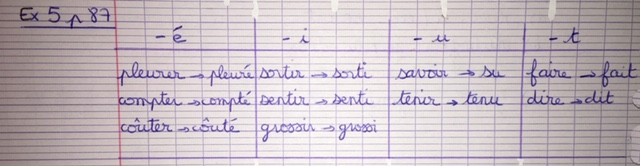 Ex 5 p 87
-é -i -u -t
pleurer → pleuré sortir → sorti savoir → su faire → fait
compter → compté sentir → senti tenir → tenu dire → dit
coûter → coûté grossir → grossi